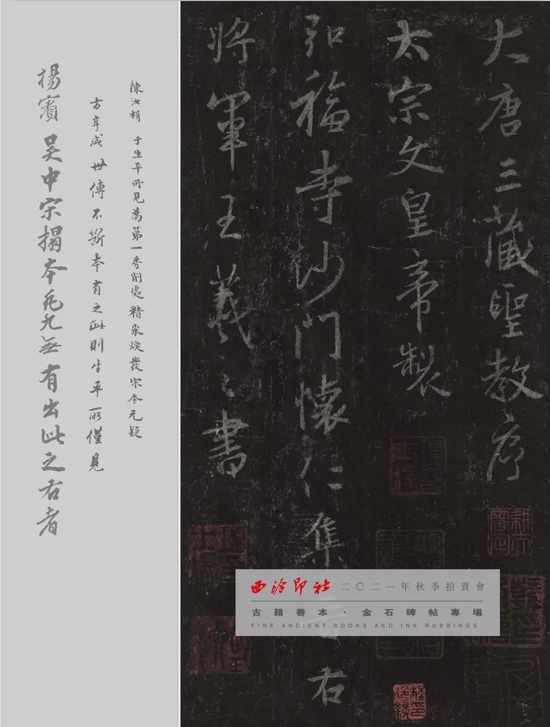 大唐三藏聖教序
太宗文皇帝製
弘福寺沙門懷仁集晉右
將軍王羲之書
陳汝楫 于生平所見為第一香削處精采煥發宋本无疑
方亨咸 世傳不斷本有之此則生平所僅見
楊賓 吳中宋搨本充九無有出此之右者
西泠印社 二〇二一年秋季拍賣會
古籍善本·金石碑帖專場
FINE ANCIENT BOOKS AND INK RUBBINGS